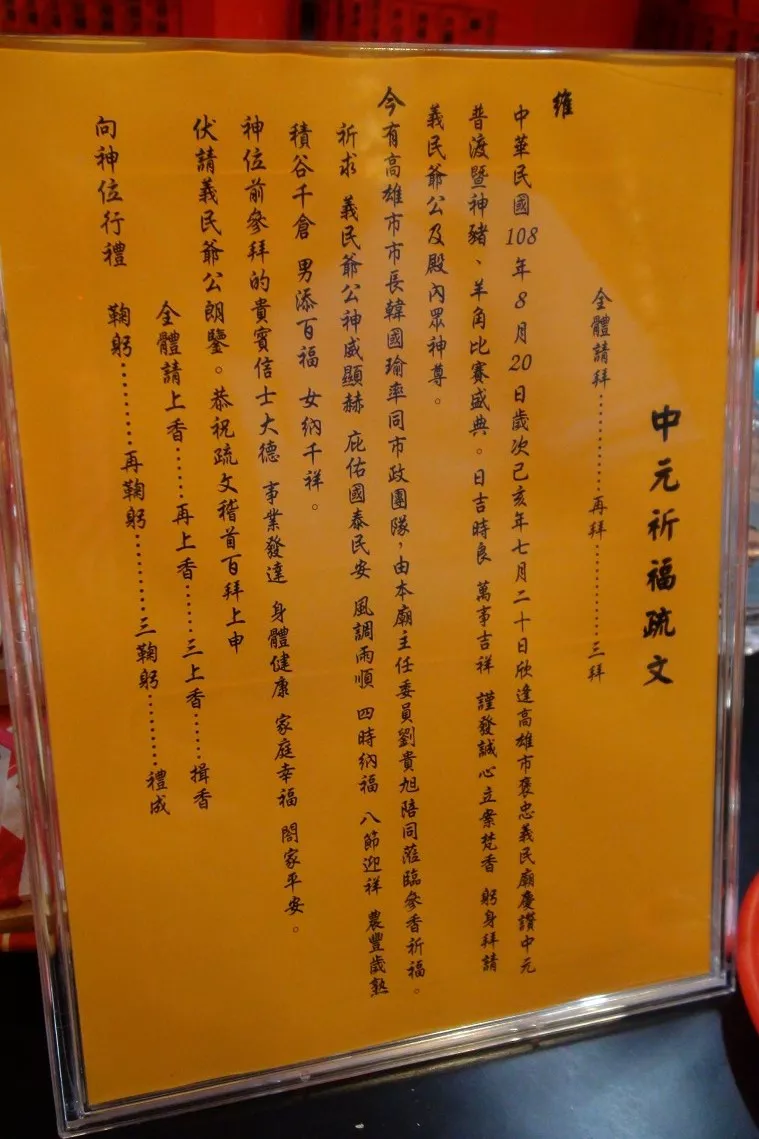 中元祈福疏文
全體請拜…………再拜…………三拜
維
中華民國108年8月20日歲次己亥年七月二十日欣逢高雄市褒忠義民廟慶讚中元
普渡暨神豬、羊角比賽盛典。日吉時良 萬事吉祥 謹發誠心立案梵香 躬身拜請
義民爺公及殿內眾神尊。
今有高雄市市長韓國瑜率同市政團隊，由本廟主任委員劉貴旭陪同蒞臨參香祈福。
祈求 義民爺公神威顯赫 庇佑國泰民安 風調雨順 四時納福 八節迎祥 農豐歲熟
積谷千倉 男添百福 女納千祥。
神位前參拜的貴賓信士大德 事業發達 身體健康 家庭幸福 閤家平安。
伏請義民爺公朗鑒。恭祝疏文稽首百拜上申
全體請上香……再上香……三上香……揖香
向神位行禮 鞠躬…………再鞠躬…………三鞠躬…………禮成